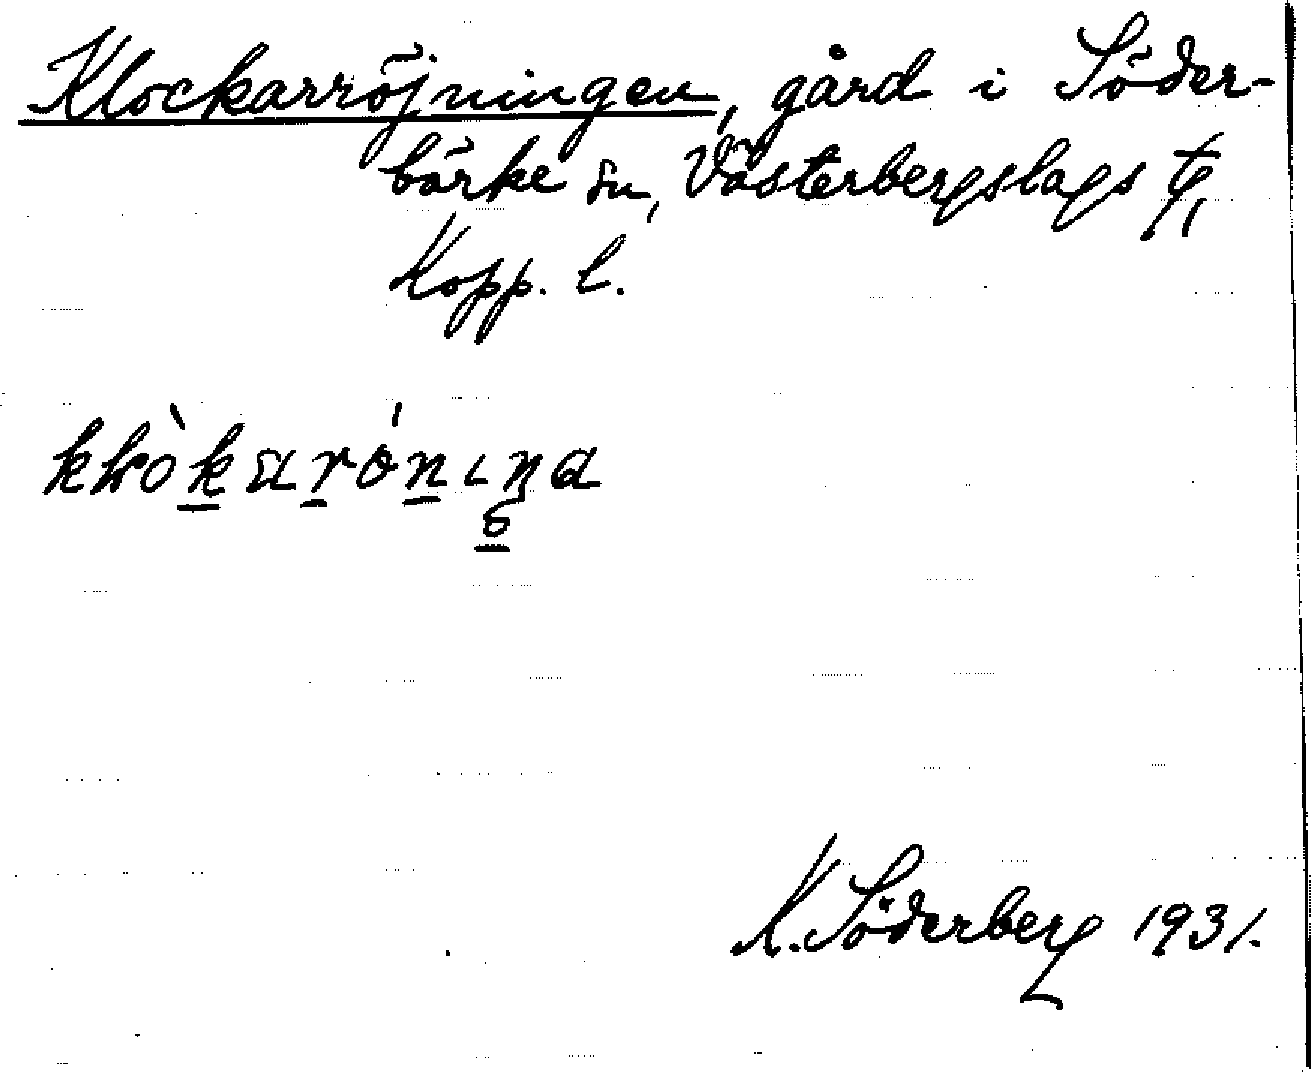 Klockarröjningen, gård i Söder-
bärke sn, Västerbergslags
Kopp. l.
K. Söderberg 1931.